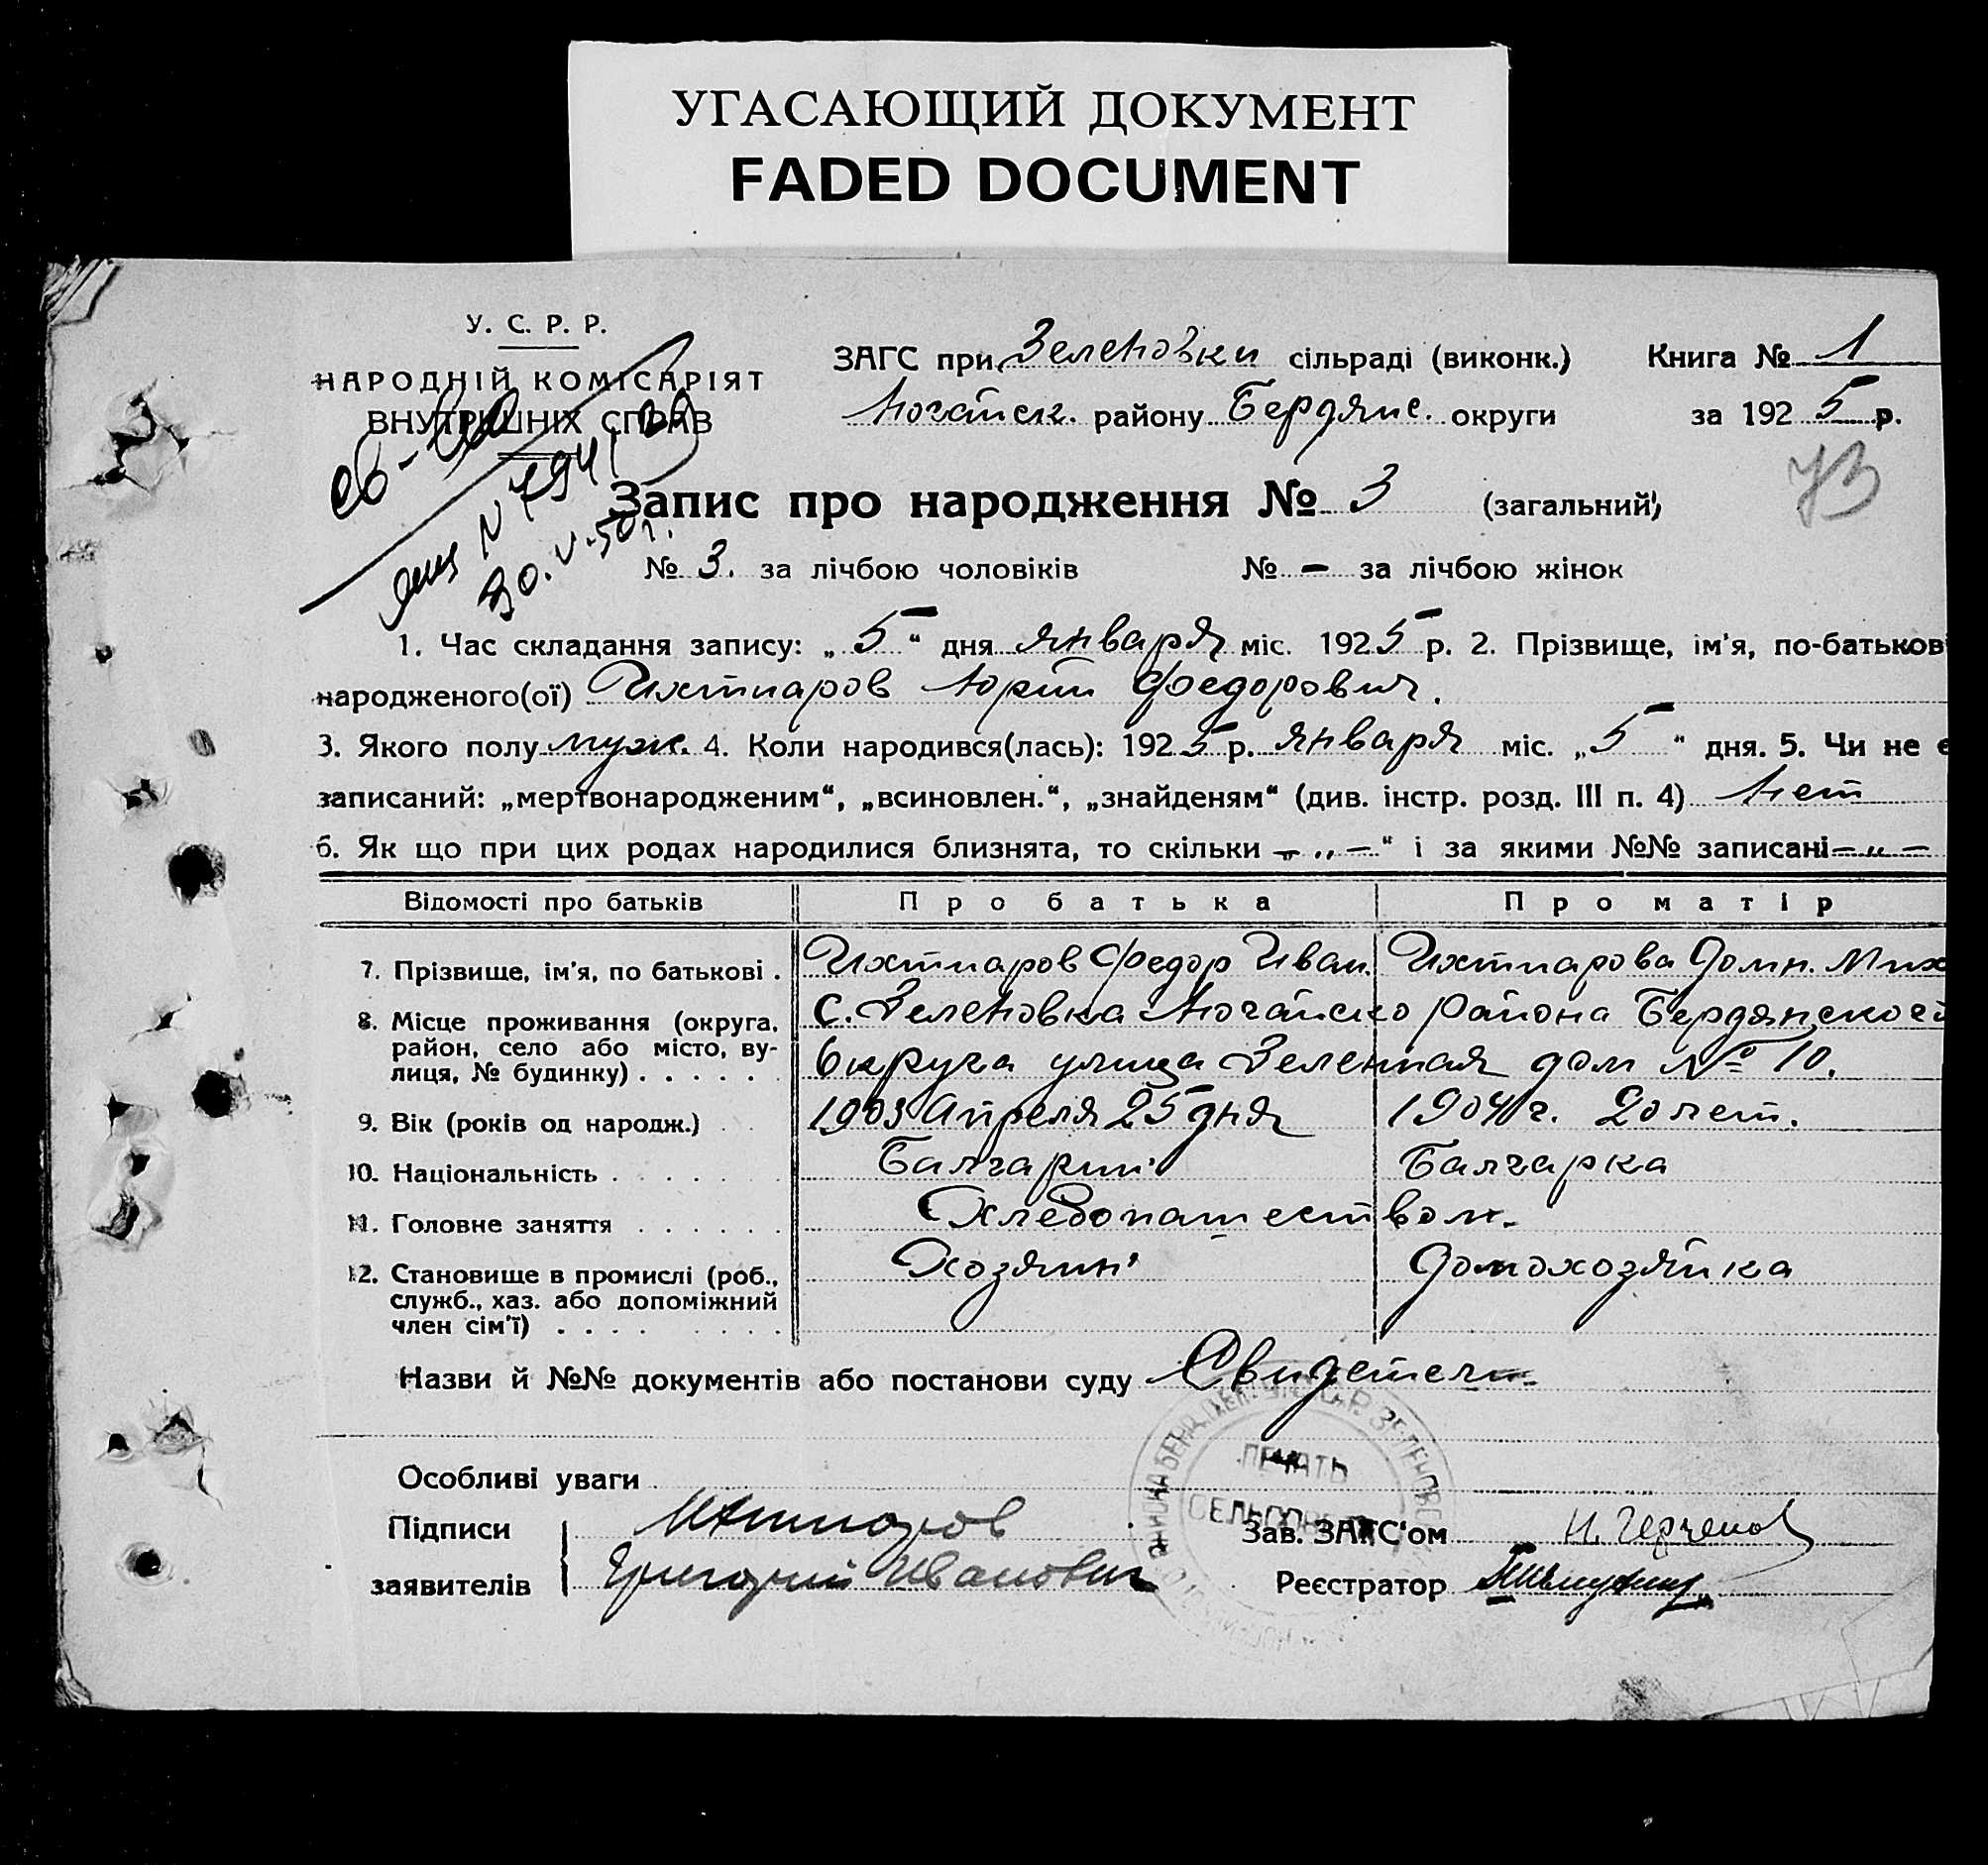 УГАСАЮЩИЙ ДОКУМЕНТ
FADED DOCUMENT
У. С. Р. Р.
НАРОДНІЙ КОМІСАРІЯТ
ВНУТРІШНІХ СПРАВ
ЗАГС при Зеленовки сільраді (виконк.) Книга № 1
Ногайск. району Бердянс. округи за 1925 р.
73
N 794
30.V-50г.
Запис про народження № 3 (загальний)
№ 3. за лічбою чоловіків № – за лічбою жінок
1. Час складання запису: „5“ дня января міс. 1925 р. 2. Прізвище, ім'я, по-батькові
народженого(ої) Ихтиаров Юрий Федорович.
3. Якого полу муж. 4. Коли народився(лась): 1925 р. января міс. „5“ дня. 5. Чи не є
записаний: „мертвонародженим“, „всиновлен.“, „знайденям“ (див. інстр. розд. III п. 4) Нет
6. Як що при цих родах народилися близнята, то скільки – „ –“ і за якими №№ записані – „ –
Відомості про батьків Про батька Про матір
7. Прізвище, ім'я, по батькові . Ихтиаров Федор Иван. Ихтиарова Домн. Мих
8. Місце проживання (округа, район, село або місто, ву- лиця, № будинку) . . . . . с. Зеленовка Ногайско района Бердянской
Округа улица Зеленная дом № 10.
9. Вік (років од народж.) . . 1903 Апреля 25 дня 1904 г. 20 лет.
10. Національність . . . . . . Балгарин Балгарка
11. Головне заняття . . . . . . Хлебопашеством.
12. Становище в промислі (роб., служб., хаз. або допоміжний член сім'ї) . . . . Хозяин Домохозяйка
Назви й №№ документів або постанови суду Свидетели
ПЕЧАТЬ
Особливі уваги
Підписи Ихтиаров Зав. ЗАГС'ом
заявителів Григорий Иванович Реєстратор